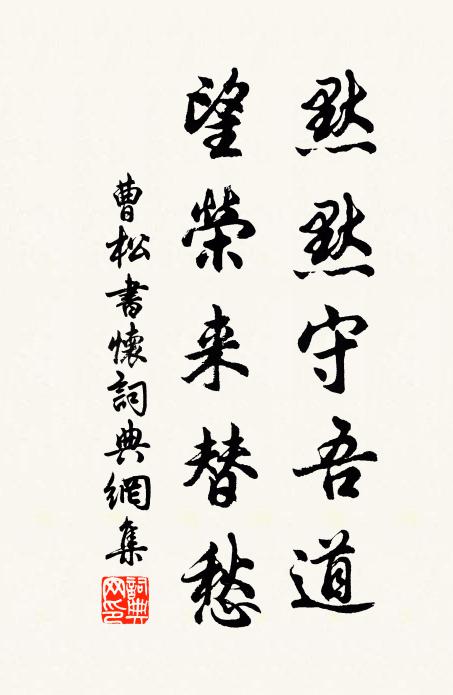 默默守吾道
望榮来替愁
曹松書懷詞典網集
詞典網印